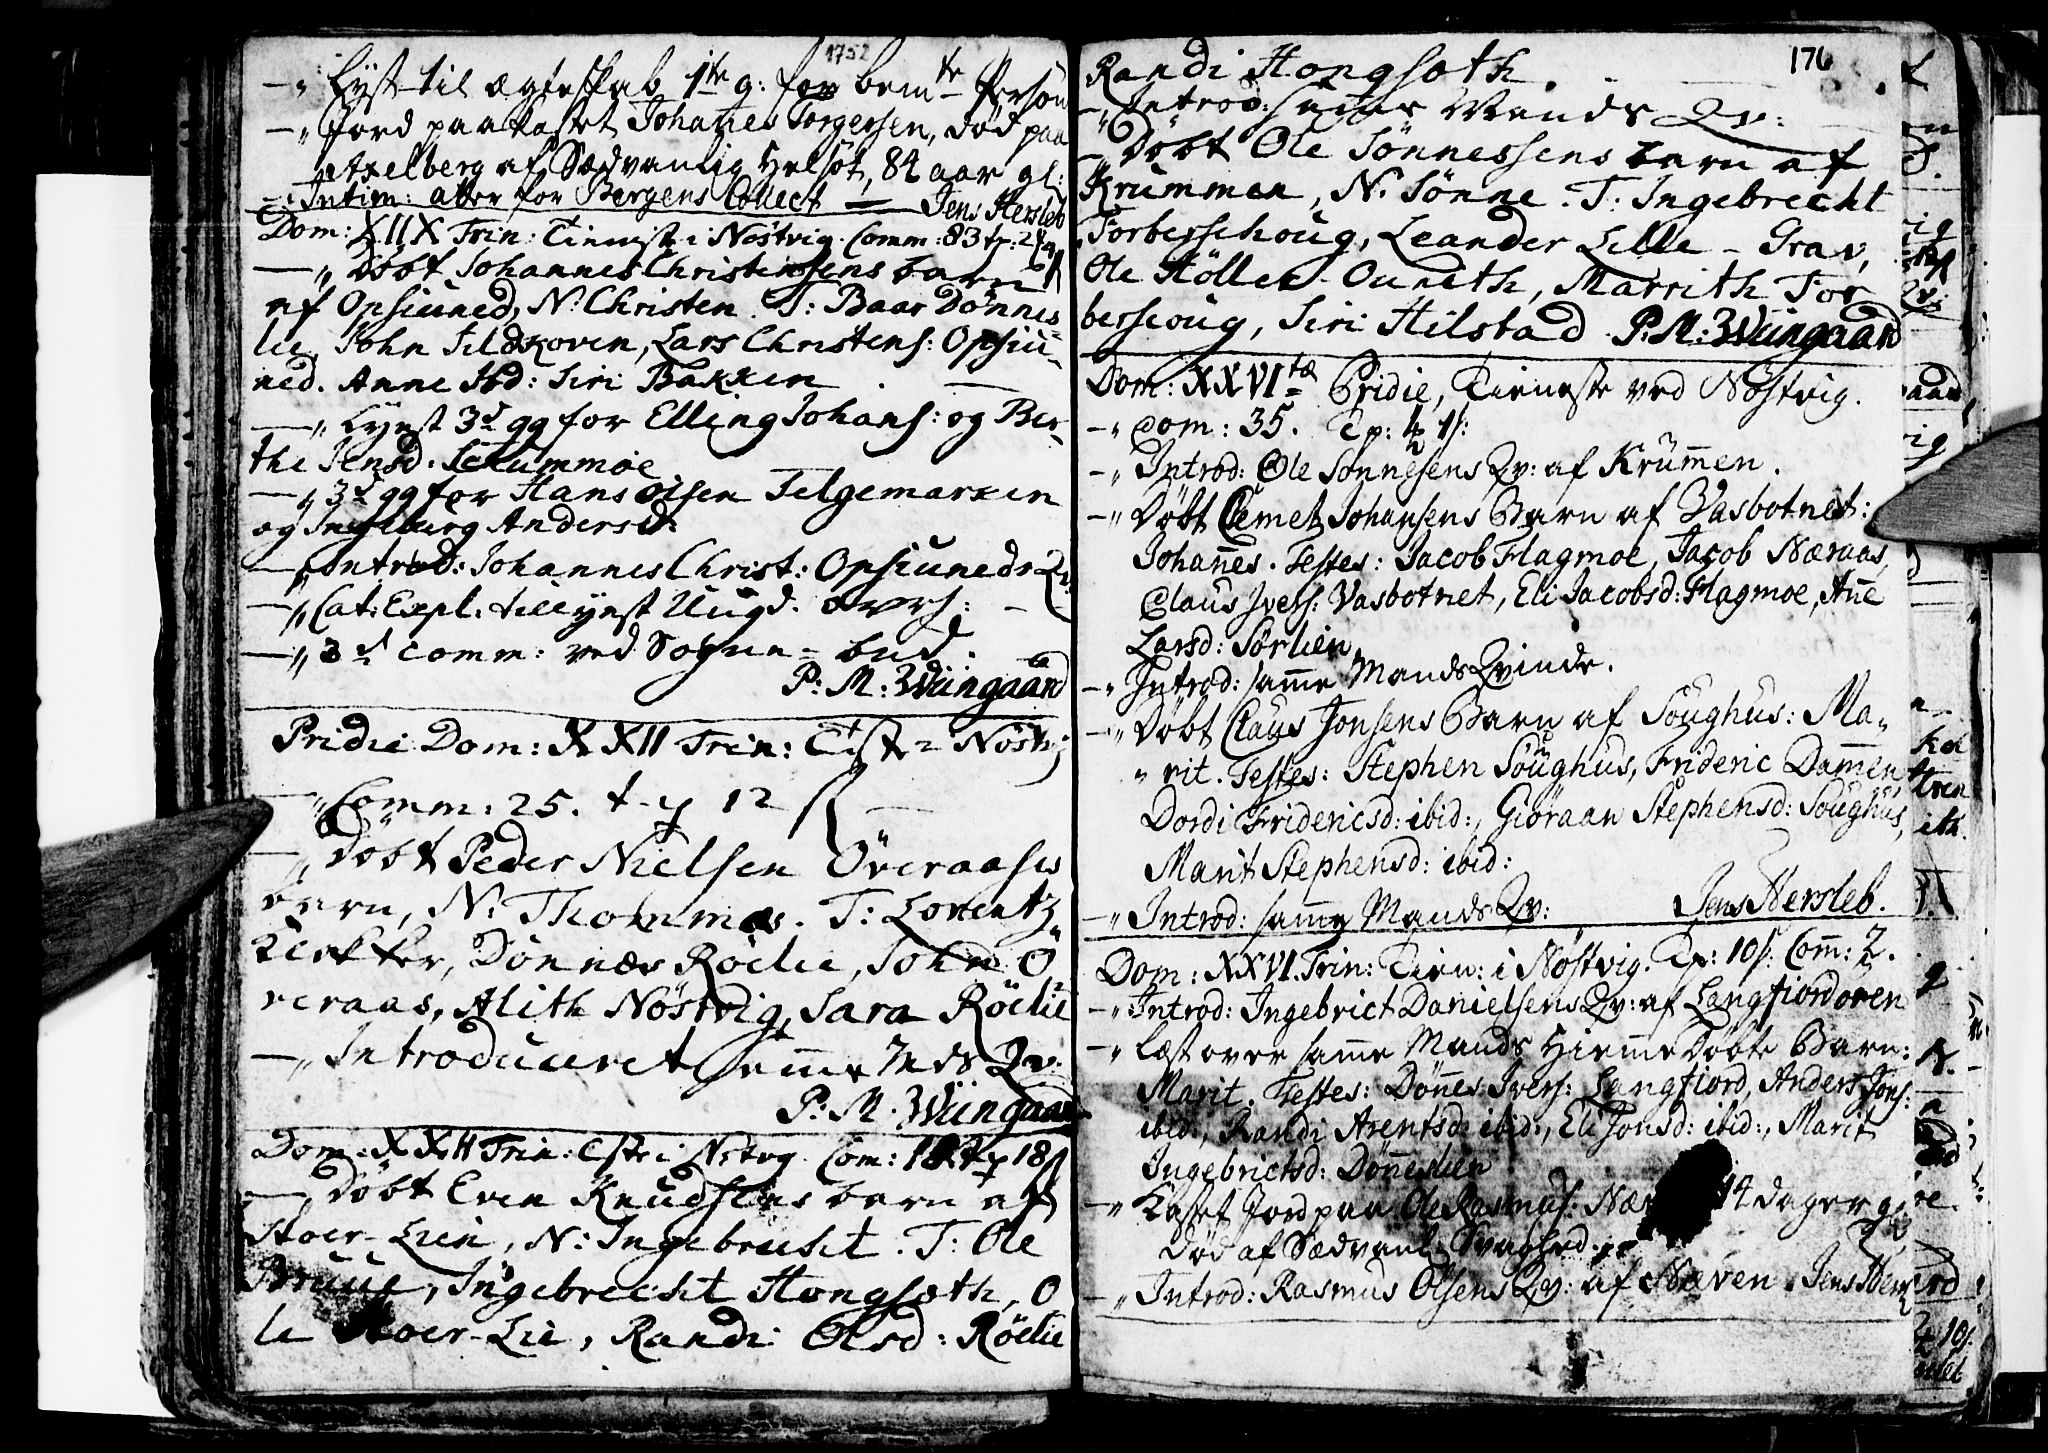 1752
—" Lyst til ægteskab 1te g: for bemte Person
—" Jord paakastet Johanes Torgersen, død paa
Axelberg af Sædvanlig Helsot, 84 aar gl:
—" Intim: atter for Bergens Collect — Jens Hersleb
Dom: XIIX Trin: Tienest i Nöstvig. Comm: 83 tp:
—" Döbt Johannes Christensens barn
af Opsiuned, N: Christen. T: Baar Dönnes
lie, John Sildskoven, Lars Christens: Opsiu-
ned. Anne Ibd: Siri Bakken.
—" Lynst 3d gg for Elling Johans: og Ber-
the Jensd. Schummoe
—" 3d gg for Hans Olsen Telgemarken
og Ingeburg Andersd:
—" Introd: Johannes Christ: Opsiuneds Qv:
—" Cat: Expl: tillynst Uugd. overh: —
—" 3d Comm: ved Sogne-bud.
P: M: Wiingaard
Pridie Dom: XXII Trin: Tist i Nöstvig
—" Comm: 25. t-p 12 ſ —
—" Döbt Peder Nielsen Överaases
barn, N: Thommas. T: Lorentz
Kirkker, Dönnæs Röelie, John Ö-
veraas, Alith Nöstvig, Sara Röelie
—" Introduceret samme Mds Qv:
P: M. Wiingaard
Dom: XXII Trin: Tste i Nstvg. Com: 18 tp 18 ſ
—" Döbt Even Knudsens barn af
Stoer-Lien, N: Ingebrecht. T: Ole
Bruue, Ingebrecht Hongsoth, O
le Stoer-Lie, Randi Olsd: Röelie
176
Randi Hongsoth.
—" Introd: samme Mands Qv:
—" Döbt Ole Sönnessens barn af
Krummen, N. Sönne. T: Ingebrecht
Torberschoug, Leander Lille-Grav,
Ole Höller-Oureth, Marrith Tor
berscoug, Siri Hilstad. P: M: Wiingaard
Dom: XXVItæ Pridie, Tieneste ved Nöstvig.
—" Com: 35. Tp: 4 1ſ:
—" Introd: Ole Sönnesens Qv: af Krum̄en.
—" Döbt Clemet Johansens Barn af Vasbotnet:
Johan̄es. Testes: Jacob Flagmoe, Jacob Næraas,
Claus Ivers: Vasbotnet, Eli Jacobsd: Flagmoe, An̄e
Larsd: Sörlien.
—" Introd: sam̄e Mands Qvinde.
—" Döbt Claus Jonsens Barn af Soughus: Ma-
" rit. Testes: Stephen Soughus, Frideric Dam̄en,
Dordi Fridericsd: ibid:, Giöraan Stephensd: Soughus,
Marit Stephensd: ibid:
—" Introd: sam̄e Mands Qv: Jens Hersleb.
Dom: XXVI. Trin: Tien: i Nöstvig. Tp: 10ſ. Com̄: 2.
—" Introd: Ingebrict Danielsens Qv: af Langfiordoren
—" Læst over sam̄e Mands Hiem̄e Döbte Barn:
Marit. Testes: Dön̄es Ivers: Langfiord, Anders Jons:
ibid:, Randi Arentsd: ibid:, Eli Jonsd: ibid:, Marit
Ingebrictsd: Dön̄eslien
—" Kastet Jord paa Ole Rasmus: Næ 14 dager g:
död af Sædvanl: Svaghed.
—" Introd: Rasmus Olsens Qv: af Næven. Jens Hersleb